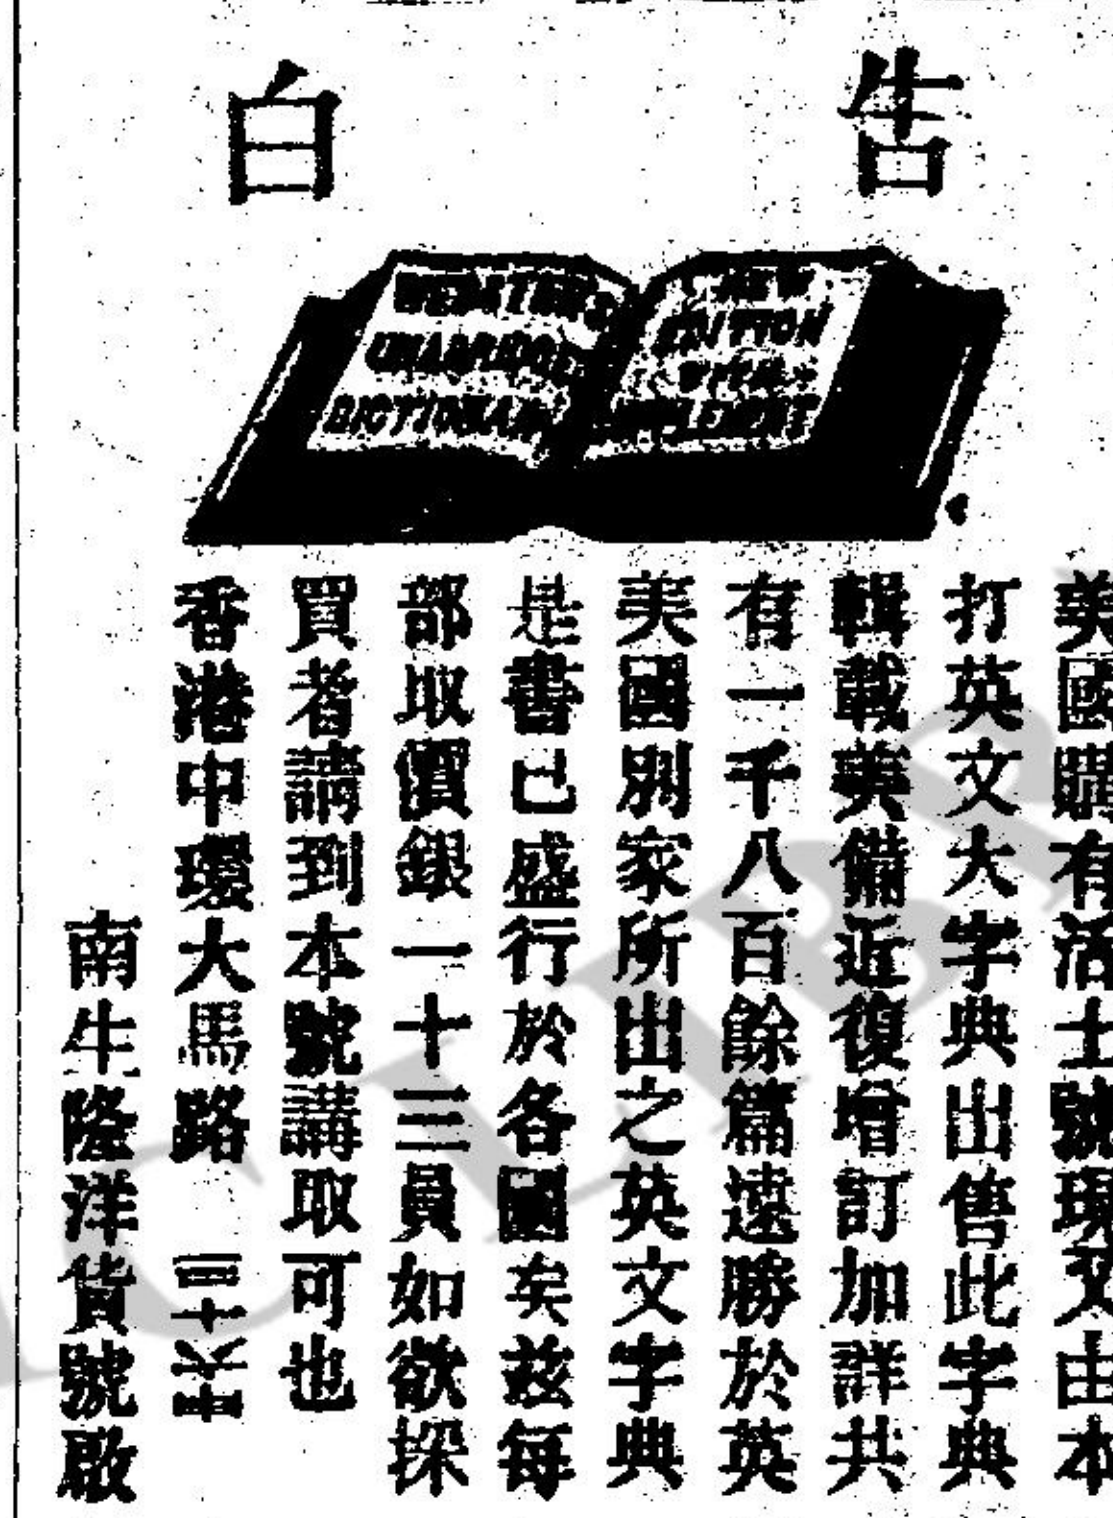 告白
WEBSTER'S
UNABRIDGED
DICTIONARY
NEW
EDITION
WITH
SUPPLEMENT
美國購有活士號現又由本
打英文大字典出售此字典
輯載美備近復增訂加詳共
有一千八百餘篇遠勝於英
美國別家所出之英文字典
是書已盛行於各國矣茲每
部取價銀一十三員如欲採
買者請到本號講取可也
香港中環大馬路
南生隆洋貨號啟